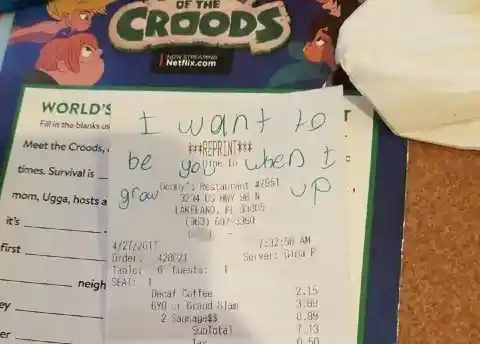 OF THE
CROODS
NOW STREAMING
Netflix.com
WORLD'S
Fill in the blanks us
Meet the Croods,
times. Survival is
mom, Ugga, hosts a
it's
first
neigh
ey
er
I want to
***REPRINT***
be you when I
Dine In
grow up
Denny's Restaurant #7851
3234 US HWY 98 N
LAKELAND, Fl 33805
7:32:56 AM
Order: 428021
Server: Gina P
Table: 6 Guests: 1
SEAT: 1
Decaf Coffee 2.15
BYO ur Grand Slam 3.99
2 Sausage$$ 0.99
SubTotal 7.13
Tax 0.50